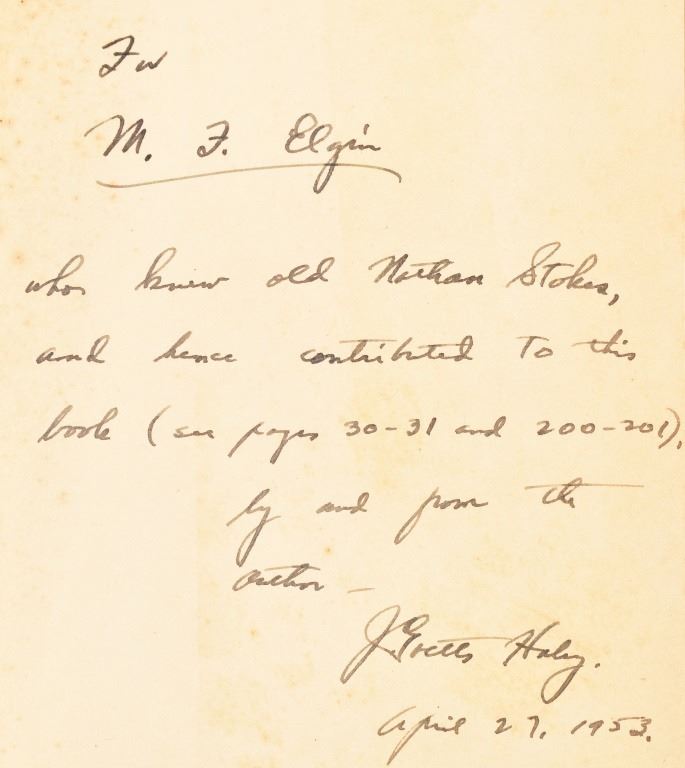 For
M. F. Elgin
who knew old Nathan Stokes,
and hence contributed to this
book (see pages 30-31 and 200-201),
by and from the
author —
J. Evetts Haley.
April 27, 1953.